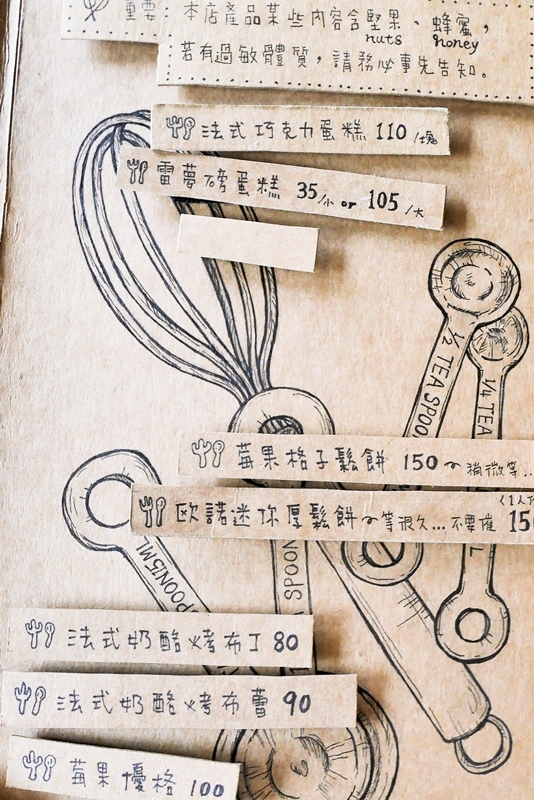 重要：本店產品某些內容含堅果、蜂蜜，
nuts honey
若有過敏體質，請務必事先告知。
法式巧克力蛋糕 110 /塊
雷夢磅蛋糕 35/小 or 105/大
1/2 TEA SPOON
1/4 TEA
莓果格子鬆餅 150~稍微等...
<1人
歐諾迷你厚鬆餅~等很久...不要催 150
SPOON15ML
SPOON
L
法式奶酪烤布丁 80
法式奶酪烤布蕾 90
莓果優格 100